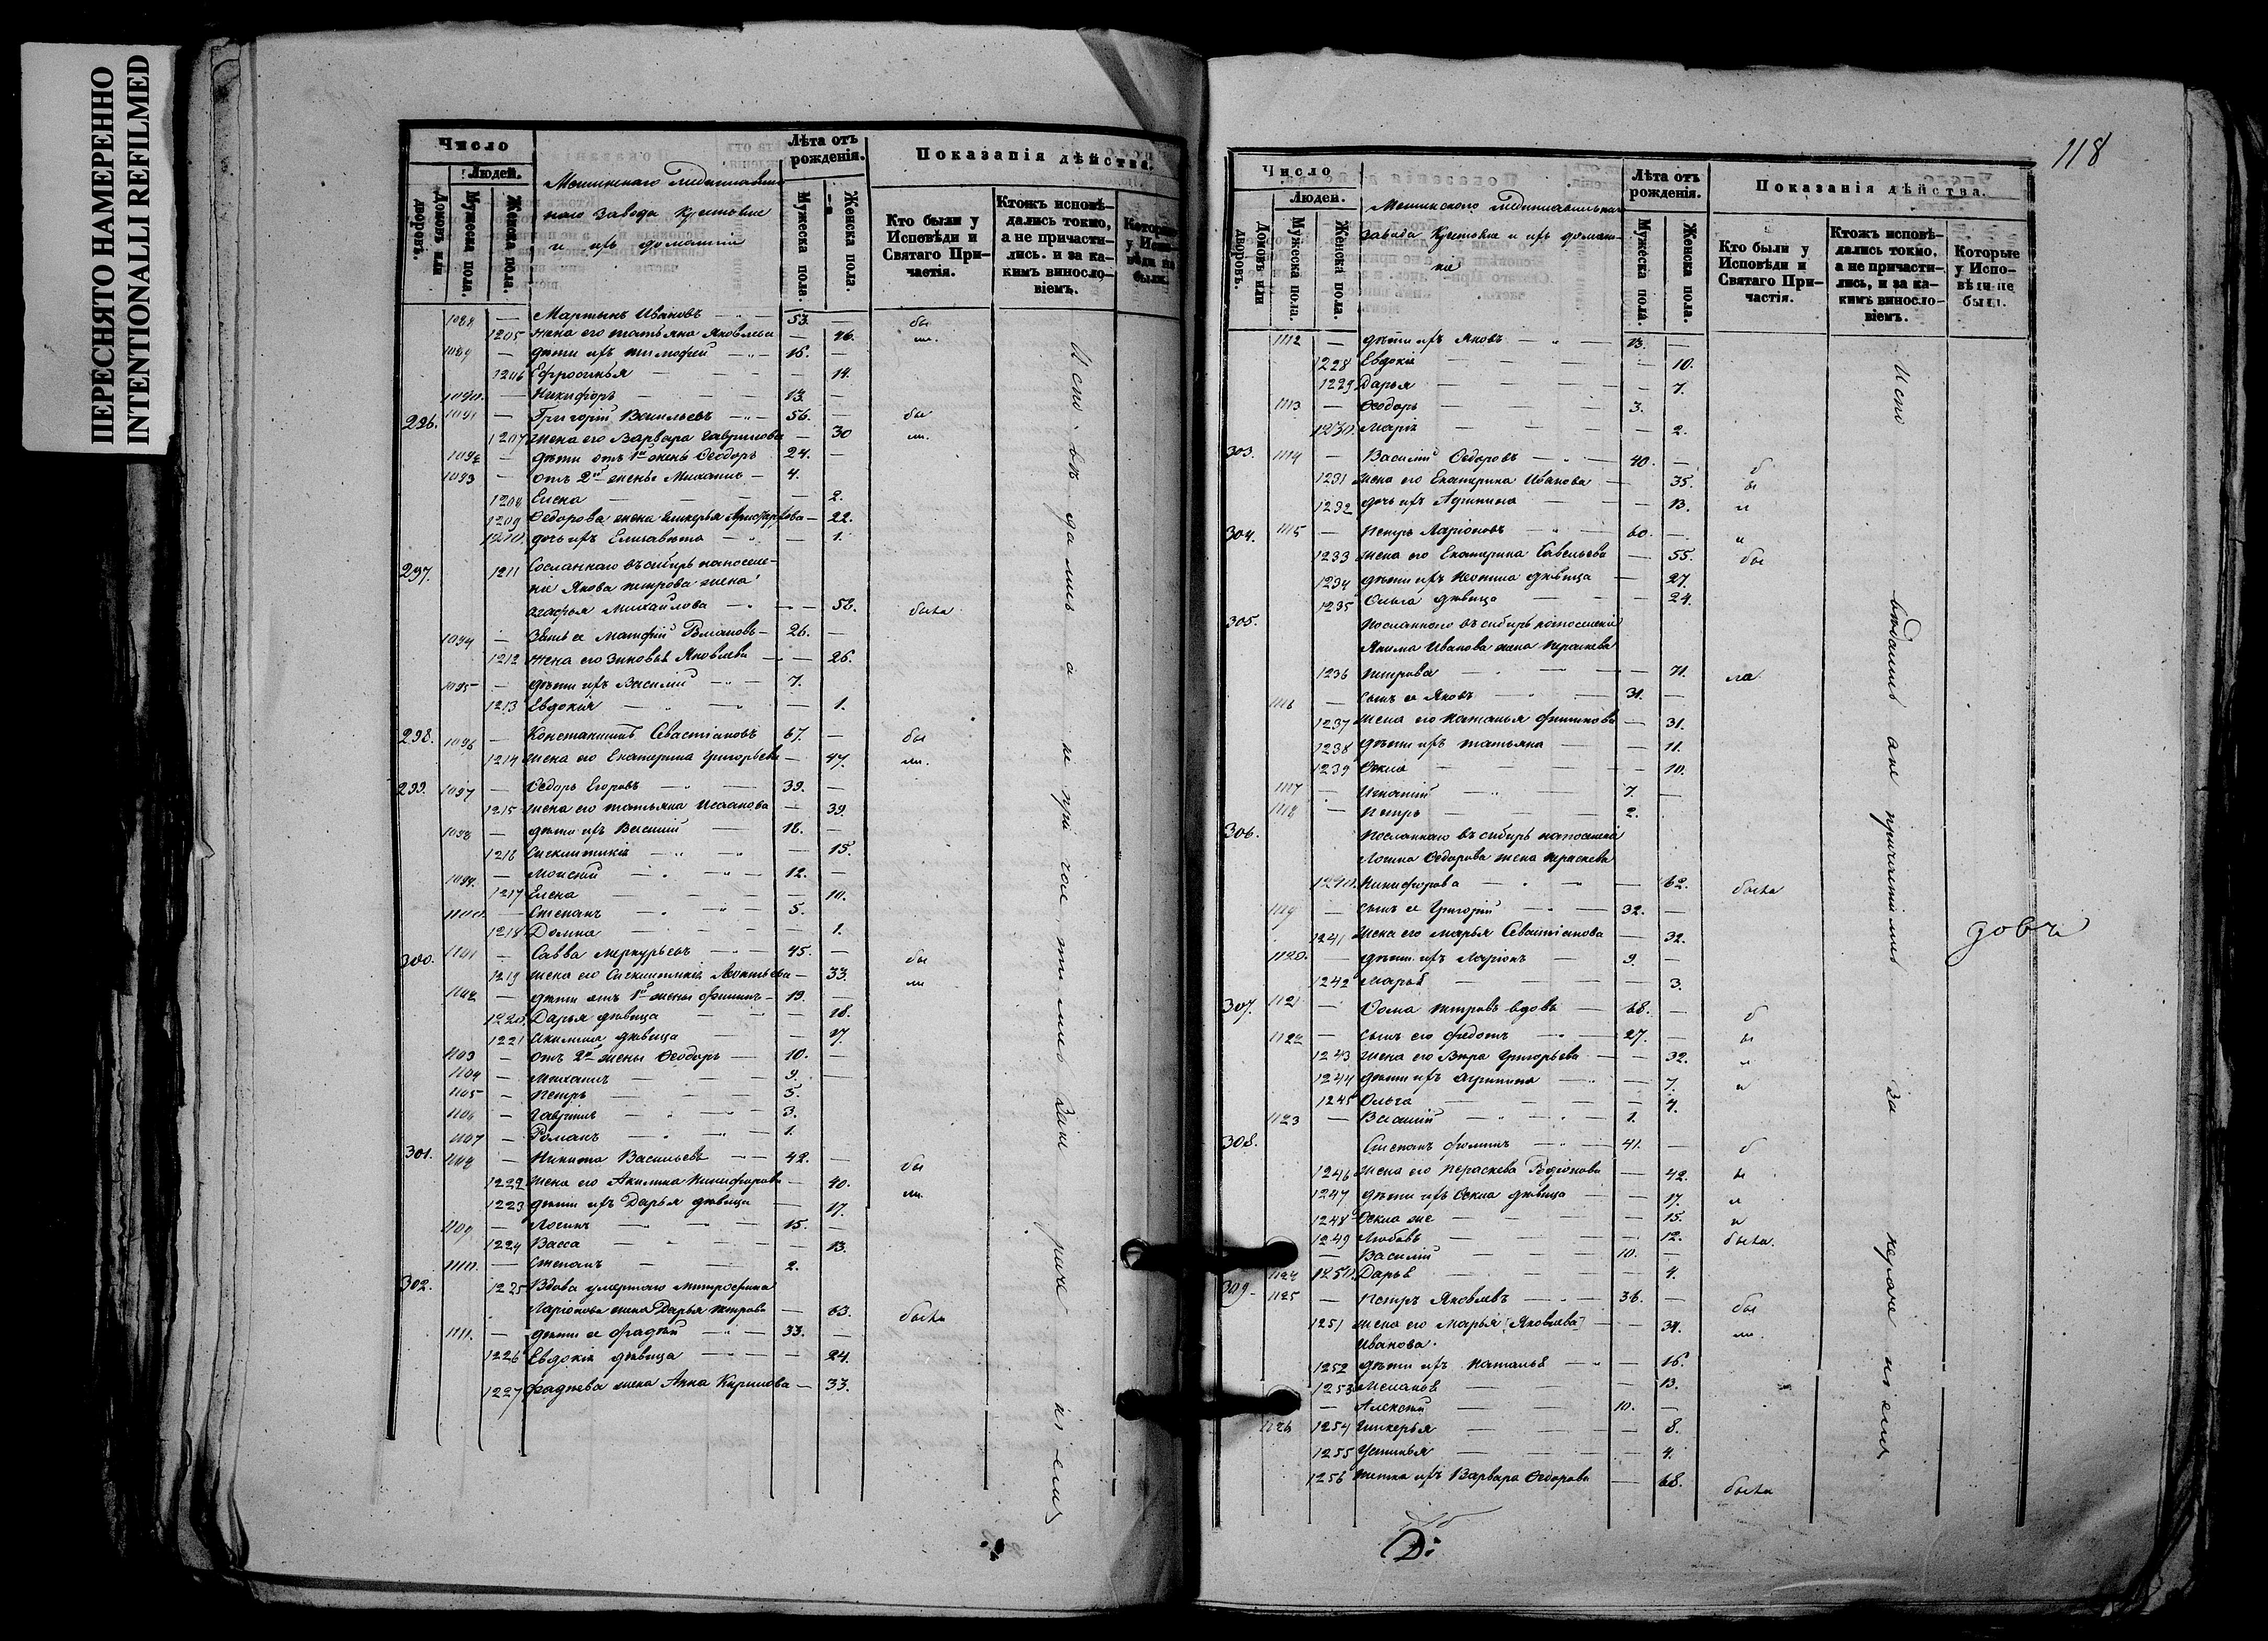 ПЕРЕСНЯТО НАМЕРЕННО
INTENTIONALLI REFILMED
118
Число
Людей.
Домовъ или дворовъ.
Мужеска пола.
Женска пола.
ного завода Крестьяне
и ихъ домашніи
Лѣта отъ рожденія.
Мужеска пола.
Женска пола.
Показанія дѣйства.
Кто были у Исповѣди и Святаго Причастія.
Ктожъ исповѣдались токмо, а не причастились. и за какимъ винословіемъ.
Которые у Исповѣди не были.
— Мартынъ Ивановъ — 53. — бы
1205 жена его татьяна Яковлева — 46. ли.
1089 — дѣти ихъ тимофей — 16. —
1206 Ефросинья — 14.
1090. — Никифоръ — 13. —
296. 1091 — Григорій Васильевъ — 56. — бы
1207 жена его Варвара Гаврилова — 30 ли.
1092 — дѣти отъ 1й жены Ѳеодоръ 24. —
1093 — отъ 2й жены Михаилъ — 4.
1208 Елена — 2.
1209 Ѳедорова жена Гликерья — 22.
1210. дочь ихъ Елисавета — 1.
297. 1211 Сосланнаго въ сибирь на поселе-
ніе Якова петрова жена
агафья Михайлова — 52. была
1094 — Зять ея Матфий Романовъ — 26. —
1212 жена его Зиновья Яковлева — 26.
1095 — дѣти ихъ Василий — 7.
1213 Евдокия — 1.
298. 1096 — Константинъ Севастіановъ 67. — бы
1214 жена его Екатерина Григорьева — 47. ли.
299. 1097 — Ѳедоръ Егоровъ — 39. —
1215 жена его татьяна Исаакова — 39.
1098 — дѣти ихъ Василий — 18. —
1216 Синклитикія — 15.
1099. — Моисей — 12. —
1217 Елена — 10.
1100. — Степанъ — 5.
1218 Домна — 1.
300. 1101 — Савва меркурьевъ — 45. — бы
1219 жена его Синклитикія Леонтьева — 33. ли
1102 — дѣти отъ 1й жены Филипъ — 19. —
1220. Дарья дѣвица — 18.
1221 Акилина дѣвица — 17.
1103 — отъ 2й жены Ѳеодоръ — 10. —
1104 — Михаилъ — 9. —
1105 — Петръ — 5.
1106 — Гавріилъ — 3.
1107 — Романъ — 1.
301. 1108 — Никита Васильевъ — 42. — бы
1222 жена его Акилина Никифорова — 40. ли.
1223 дѣти ихъ Дарья дѣвица — 17.
1109 — Логинъ — 15. —
1224 Васса — 13.
1110. — Степанъ — 2.
302. 1225 Вдова умершаго митрофана
Ларіонова жена Дарья петрова — 63. была
1111. — дѣти ея Фадѣй — 33. —
1226 Евдокія дѣвица — 24.
1227 Фадѣева жена Анна Кирилова — 33.
Число
Людей.
Домовъ или дворовъ.
Мужеска пола.
Женска пола.
завода Крестьяне и ихъ домаш-
ніе
Лѣта отъ рожденія.
Мужеска пола.
Женска пола.
Показанія дѣйства.
Кто были у Исповѣди и Святаго Причастія.
Ктожъ исповѣдались токмо, а не причастились, и за какимъ винословіемъ.
Которые у Исповѣди не были.
1112 — дѣти ихъ Яковъ — 13. —
1228 Евдокія — 10.
1229 Дарья — 7.
1113 — Ѳеодоръ — 3.
1230. Марія — 2.
303. 1114 — Василий Ѳедоровъ — 40. — б
1231 жена его Екатерина Иванова — 35. ы
1232 дочь ихъ Агрипина — 13. л
304. 1115 — Петръ Ларіоновъ — 60. — и
1233 жена его Екатерина Савельева — 55. бы
1234 дѣти ихъ Неонила дѣвица — 27.
1235 Ольга дѣвица — 24.
305. Посланнаго въ сибирь на поселеніе
Якима Иванова жена параскева
1236 петрова — 71. ла
1116 — Сынъ ея Яковъ — 31. —
1237 жена его Наталья филипова — 31.
1238 дѣти ихъ татьяна — 11.
1239 Ѳекла — 10.
1117 — Игнатий — 7. —
1118 — Петръ — 2.
306. Посланнаго въ сибирь на поселеніе
Логина Ѳедорова жена параскева
1240. Никифорова — 62. была
1119 — сынъ ея Григорій — 32. —
1241 жена его марья Севастіанова — 32.
1120. — дѣти ихъ Ларіонъ — 9. —
1242 Марья — 3.
307. 1121 — Ѳома петровъ вдовъ — 68. — б
1122 — сынъ его федотъ — 27. — ы
1243 жена его Вѣра Григорьева — 32. л
1244 дѣти ихъ агрипина — 7. и
1245 Ольга — 4.
1123 — Василий — 1.
308. Степанъ фоминъ — 41. — б
1246 жена его параскева Родіонова — 42. ы
1247 дѣти ихъ Ѳекла дѣвица — 17. л
1248 Ѳекла же — 15. и
1249 Любовь — 12. была.
— Василій — 10. —
1124 1250. Дарья — 4.
309. 1125 — Петръ Яковлевъ — 36. — бы
1251 жена его Марья [Яковлева] — 34. ли.
Иванова.
1252 дѣти ихъ Наталья — 16.
1253 Меланья — 13.
— Алексѣй — 10. —
1126 1254 Гликерья — 8.
1255 Устинья — 4.
1256 тетка ихъ Варвара Ѳедорова — 68. была